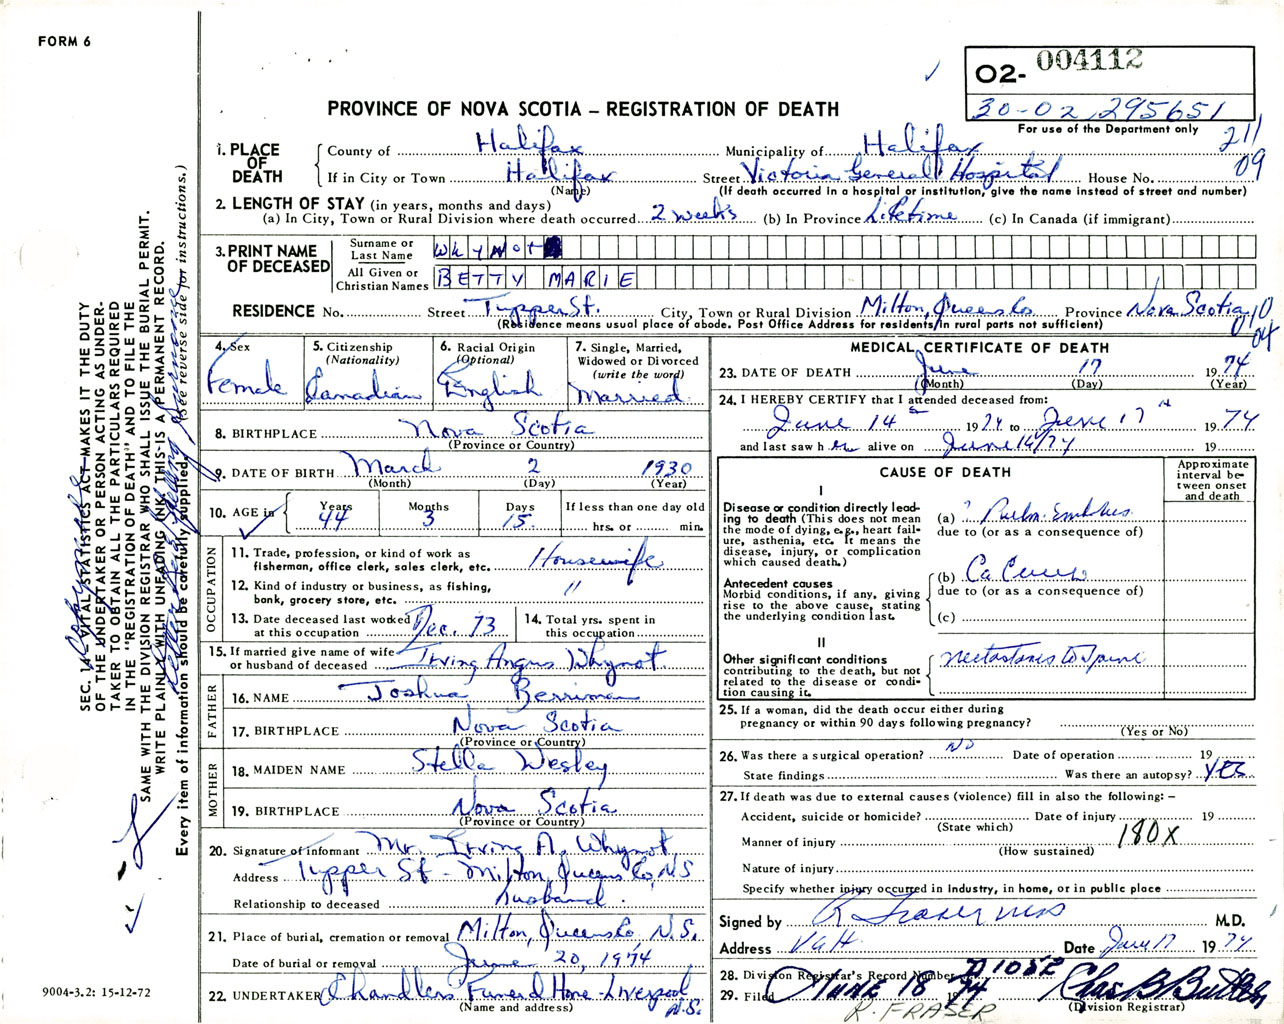 FORM 6
02- 004112
30-02, 295651
For use of the Department only
211
09
PROVINCE OF NOVA SCOTIA – REGISTRATION OF DEATH
1. PLACE OF DEATH
County of Halifax Municipality of Halifax
If in City or Town Halifax Street Victoria General Hospital House No.
(Name) (If death occurred in a hospital or institution, give the name instead of street and number)
2. LENGTH OF STAY (in years, months and days)
(a) In City, Town or Rural Division where death occurred 2 weeks (b) In Province Lifetime (c) In Canada (if immigrant)
3. PRINT NAME OF DECEASED
Surname or Last Name WhyNot
All Given or Christian Names BETTY MARIE
RESIDENCE No. Street Tupper St. City, Town or Rural Division Milton, Queens Co Province Nova Scotia
(Residence means usual place of abode. Post Office Address for residents in rural parts not sufficient)
4. Sex Female
5. Citizenship (Nationality) Canadian
6. Racial Origin (Optional) English
7. Single, Married, Widowed or Divorced (write the word) Married
8. BIRTHPLACE Nova Scotia
(Province or Country)
9. DATE OF BIRTH March 2 1930
(Month) (Day) (Year)
10. AGE in Years 44 Months 3 Days 15 If less than one day old hrs. or min.
OCCUPATION
11. Trade, profession, or kind of work as fisherman, office clerk, sales clerk, etc. Housewife
12. Kind of industry or business, as fishing, bank, grocery store, etc. "
13. Date deceased last worked at this occupation Dec. 73
14. Total yrs. spent in this occupation
15. If married give name of wife or husband of deceased Irving Angus Whynot
FATHER
16. NAME Joshua Berriman
17. BIRTHPLACE Nova Scotia
(Province or Country)
MOTHER
18. MAIDEN NAME Stella Wesley
19. BIRTHPLACE Nova Scotia
(Province or Country)
20. Signature of informant Mr. Irving A. Whynot
Address Tupper St - Milton, Queens Co, N.S
Relationship to deceased husband.
21. Place of burial, cremation or removal Milton, Queens Co, N.S.
Date of burial or removal June 20, 1974
22. UNDERTAKER Chandlers Funeral Home - Liverpool N.S.
(Name and address)
MEDICAL CERTIFICATE OF DEATH
23. DATE OF DEATH June 17 1974
(Month) (Day) (Year)
24. I HEREBY CERTIFY that I attended deceased from:
June 14 1974 to June 17 1974
and last saw her alive on June 16/74 19
CAUSE OF DEATH
Approximate interval between onset and death
I
Disease or condition directly leading to death (This does not mean the mode of dying, e.g., heart failure, asthenia, etc. It means the disease, injury, or complication which caused death.)
(a) ? Pulm. Embolus
due to (or as a consequence of)
Antecedent causes
Morbid conditions, if any, giving rise to the above cause, stating the underlying condition last.
(b) Ca Cervix
due to (or as a consequence of)
(c)
II
Other significant conditions
contributing to the death, but not related to the disease or condition causing it.
metastases to spine
25. If a woman, did the death occur either during pregnancy or within 90 days following pregnancy?
(Yes or No)
26. Was there a surgical operation? NO Date of operation 19
State findings Was there an autopsy? YES
27. If death was due to external causes (violence) fill in also the following: –
Accident, suicide or homicide? Date of injury 19
(State which)
Manner of injury 180X
(How sustained)
Nature of injury
Specify whether injury occurred in Industry, in home, or in public place
Signed by R Fraser M.D.
Address V.G.H. Date June 17 1974
28. Division Registrar's Record Number D1052
29. Filed JUNE 18 1974 Chas B Butler
(Division Registrar)
R. FRASER
SEC. 14 VITAL STATISTICS ACT MAKES IT THE DUTY
OF THE UNDERTAKER OR PERSON ACTING AS UNDER-
TAKER TO OBTAIN ALL THE PARTICULARS REQUIRED
IN THE "REGISTRATION OF DEATH" AND TO FILE THE
SAME WITH THE DIVISION REGISTRAR WHO SHALL ISSUE THE BURIAL PERMIT.
WRITE PLAINLY WITH UNFADING INK THIS IS A PERMANENT RECORD.
Every item of information should be carefully supplied. (See reverse side for instructions.)
9004-3.2: 15-12-72